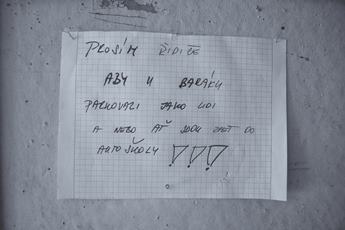 PROSÍM ŘIDIČE
ABY U BARÁKU
PARKOVALI JAKO LIDI
A NEBO AŤ JDOU ZPĚT DO
AUTOŠKOLY !!!